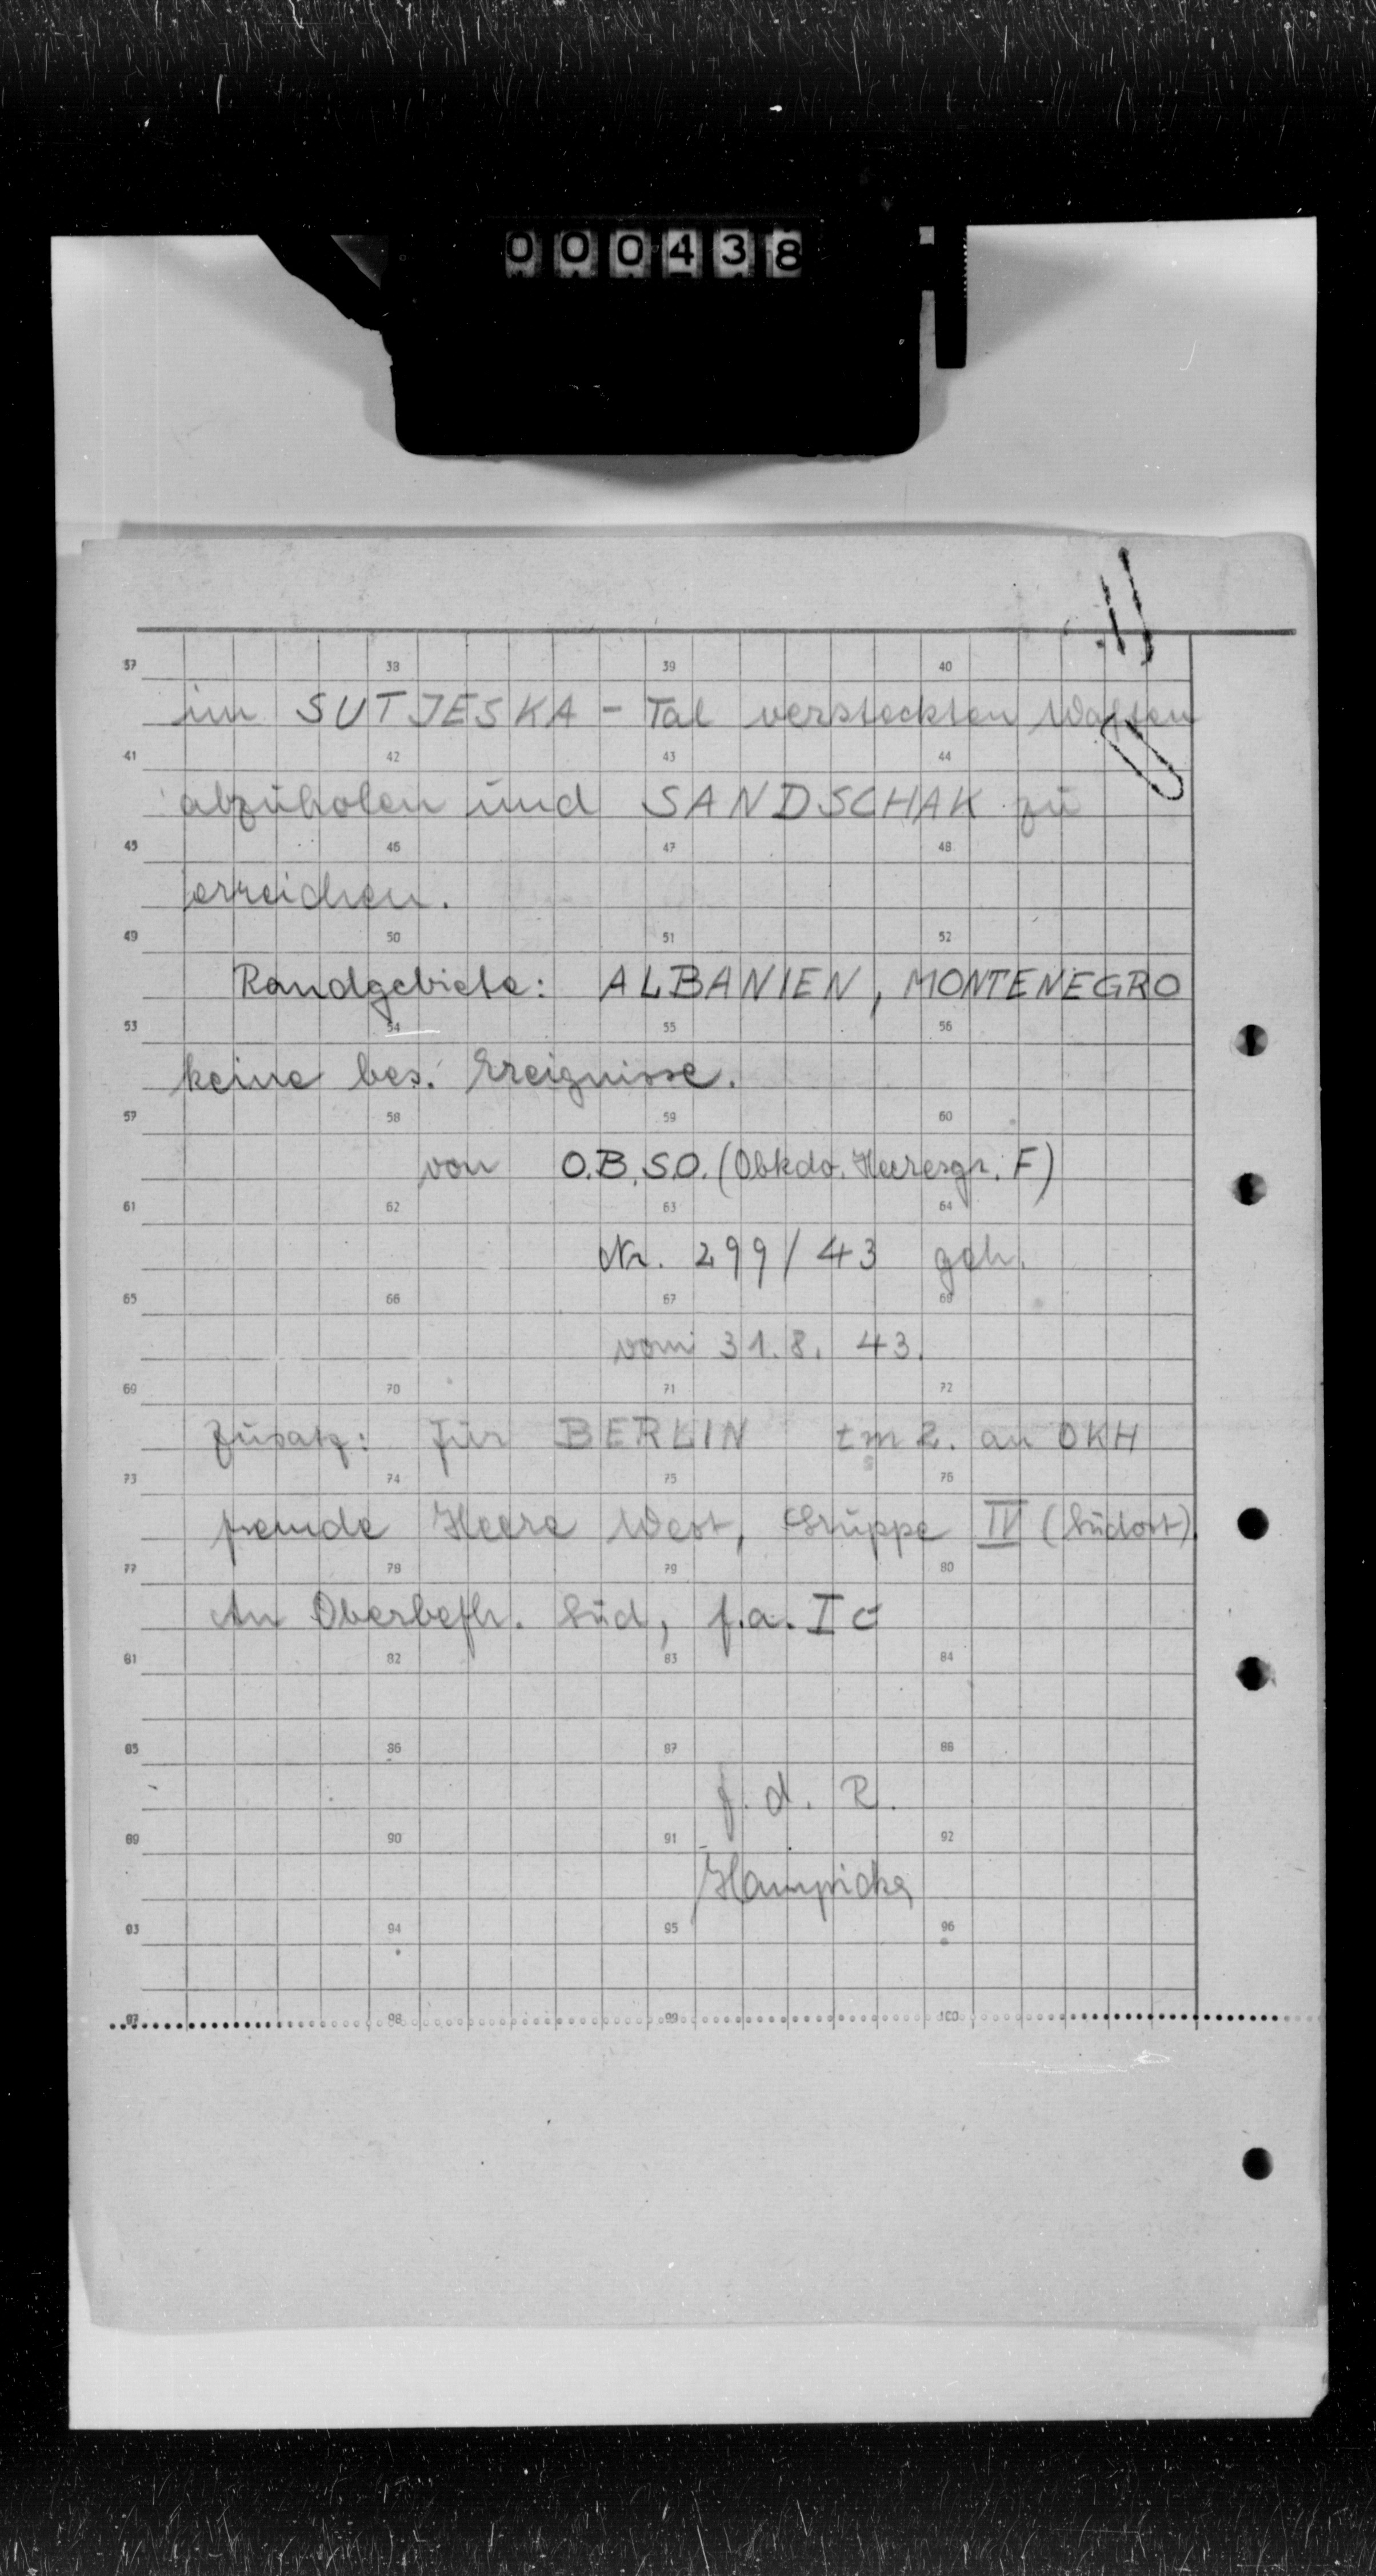 000438
37 38 39 40
im SUTJESKA - Tal versteckten Waffen
41 42 43 44
abzuholen und SANDSCHAK zu
45 46 47 48
erreichen.
49 50 51 52
Randgebiete: ALBANIEN, MONTENEGRO
53 54 55 56
keine bes. Ereignisse.
57 58 59 60
von O.B.S.O. (Obkdo. Heeresgr. F)
61 62 63 64
Nr. 299/43 geh.
65 66 67 68
vom 31.8. 43.
69 70 71 72
Zusatz: für BERLIN tm 2. an OKH
73 74 75 76
fremde Heere West, Gruppe IV (Südost)
77 78 79 80
An Oberbefh. Süd, f.a. Ic
81 82 83 84
85 86 87 88
f. d. R.
89 90 91 92
Hampicke
93 94 95 96
97 98 99 100